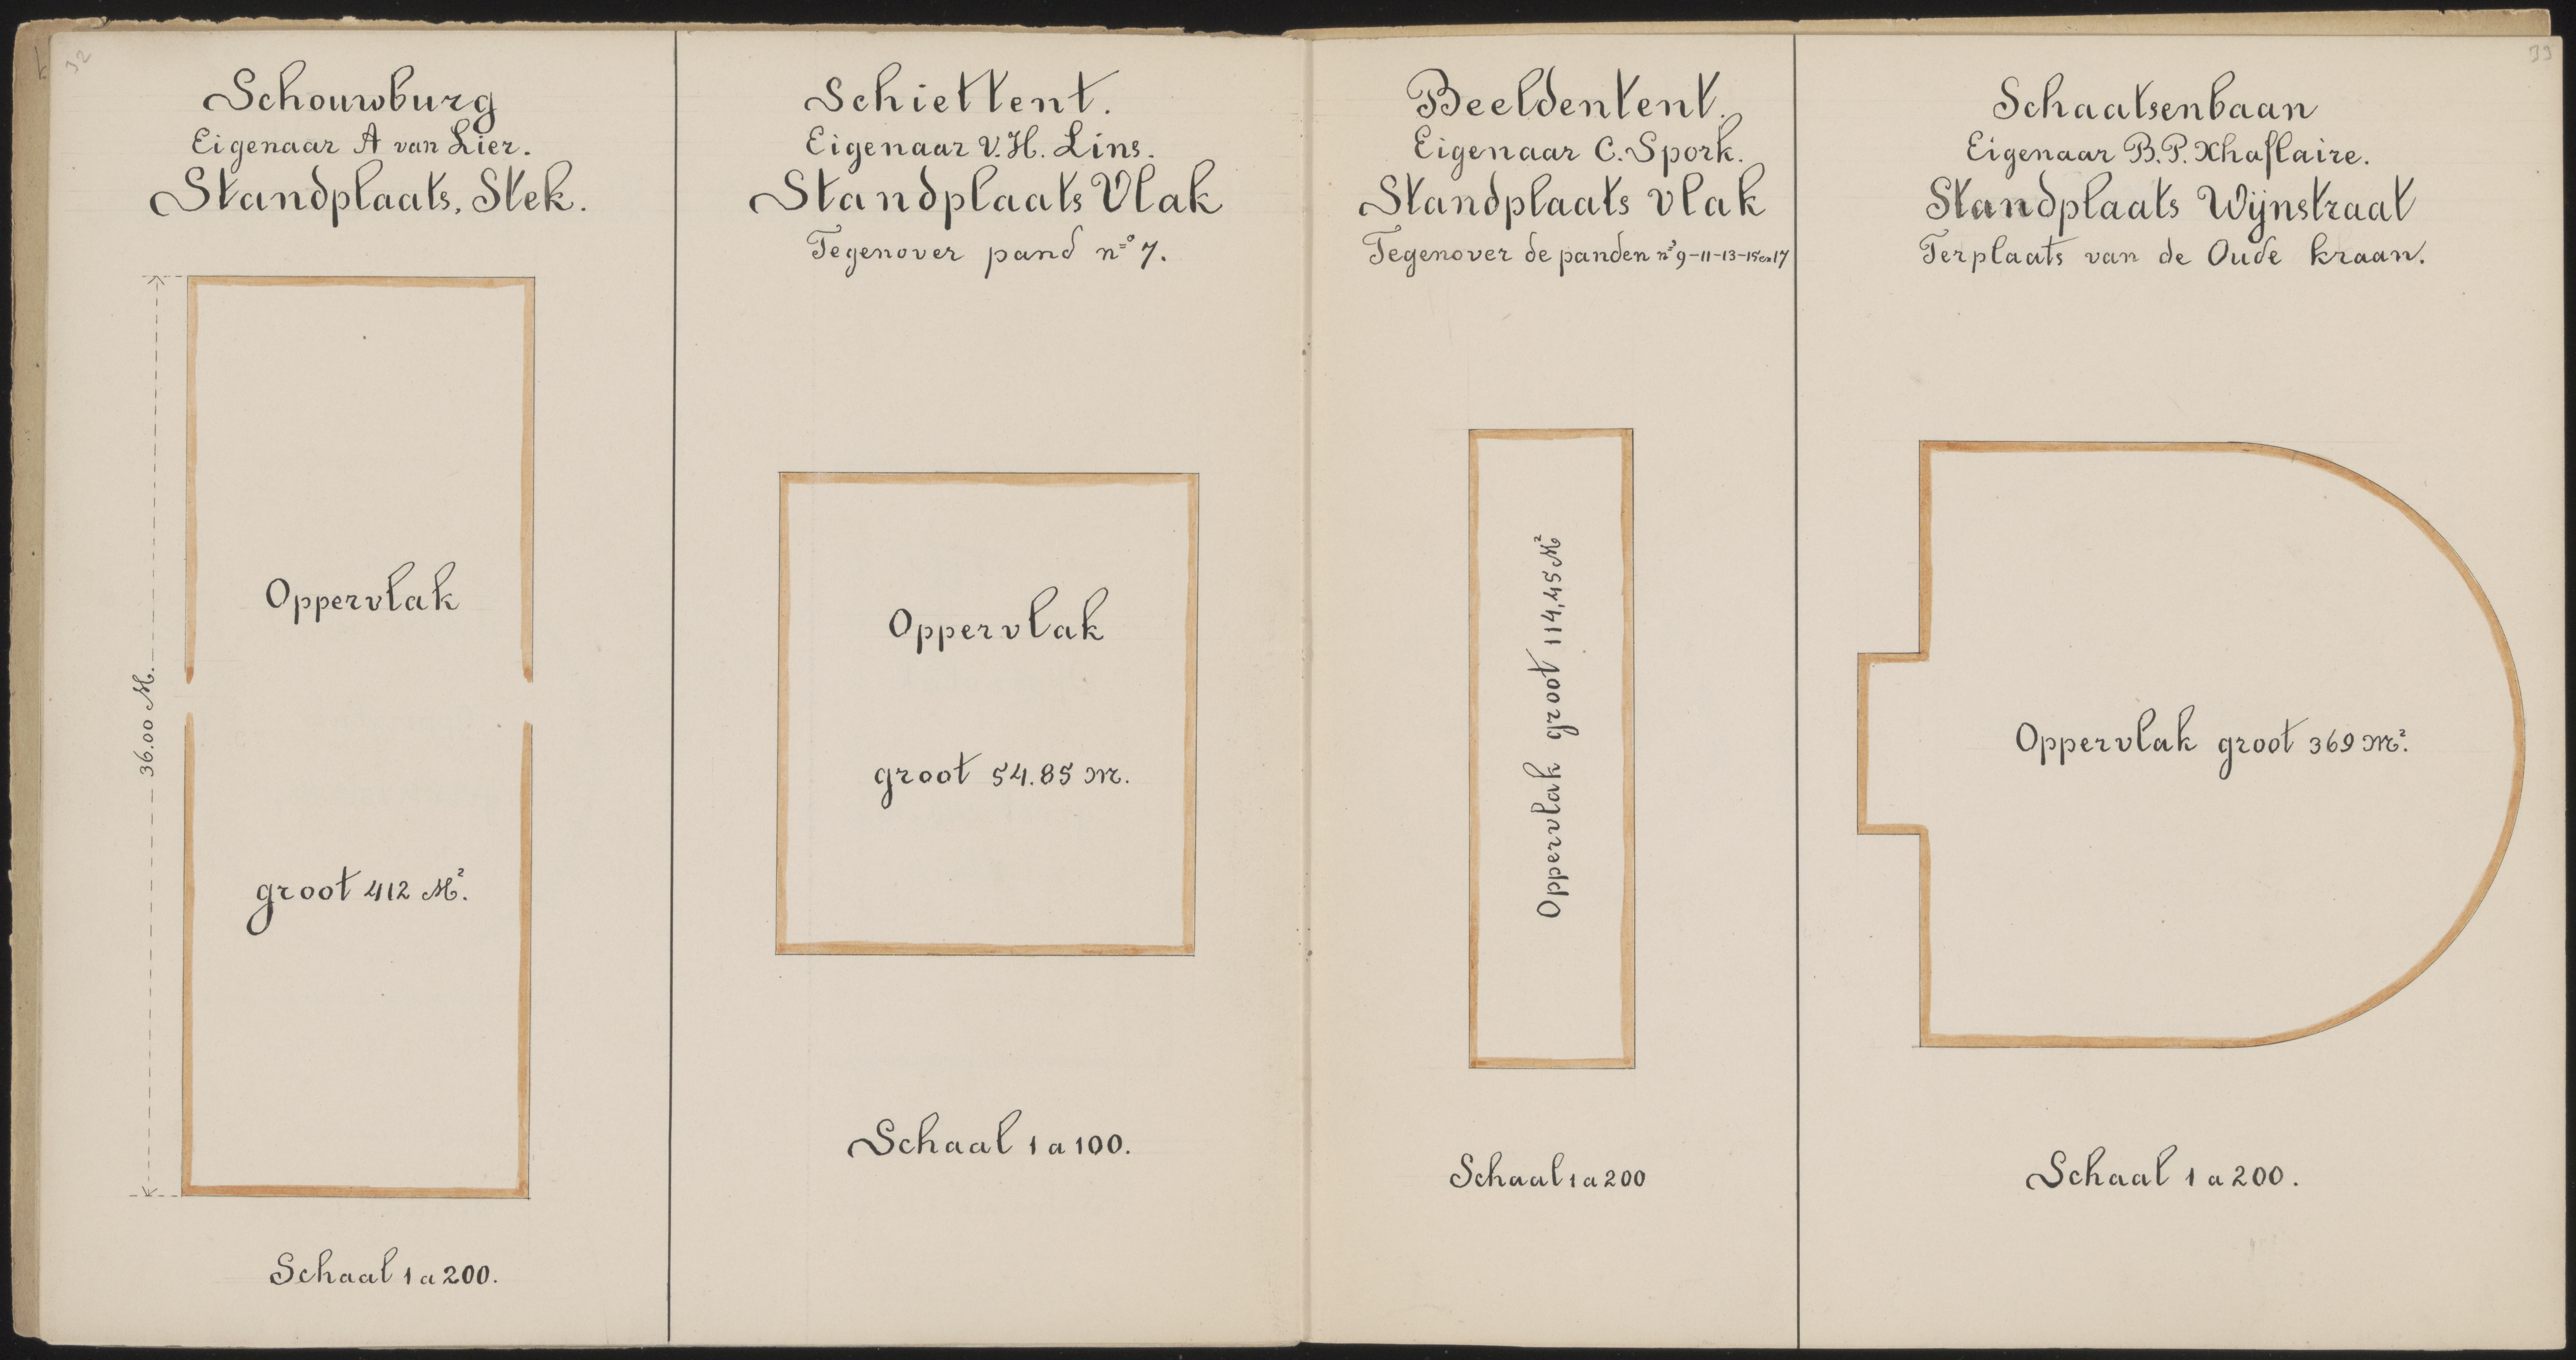 32
Schouwburg
Eigenaar A van Lier.
Standplaats, Stek.
36.00 M.
Oppervlak
groot 412 M².
Schaal 1 a 200.
Schiettent.
Eigenaar V. H. Lins.
Standplaats Vlak
Tegenover pand nº 7.
Oppervlak
groot 54.85 M.
Schaal 1 a 100.
Beeldentent.
Eigenaar C. Spork.
Standplaats vlak
Tegenover de panden nºs 9-11-13-15 en 17
Oppervlak groot 114,45 M²
Schaal 1 a 200
33
Schaatsenbaan
Eigenaar B. P. Xhaflaire.
Standplaats Wijnstraat
Ter plaats van de Oude kraan.
Oppervlak groot 369 M².
Schaal 1 a 200.